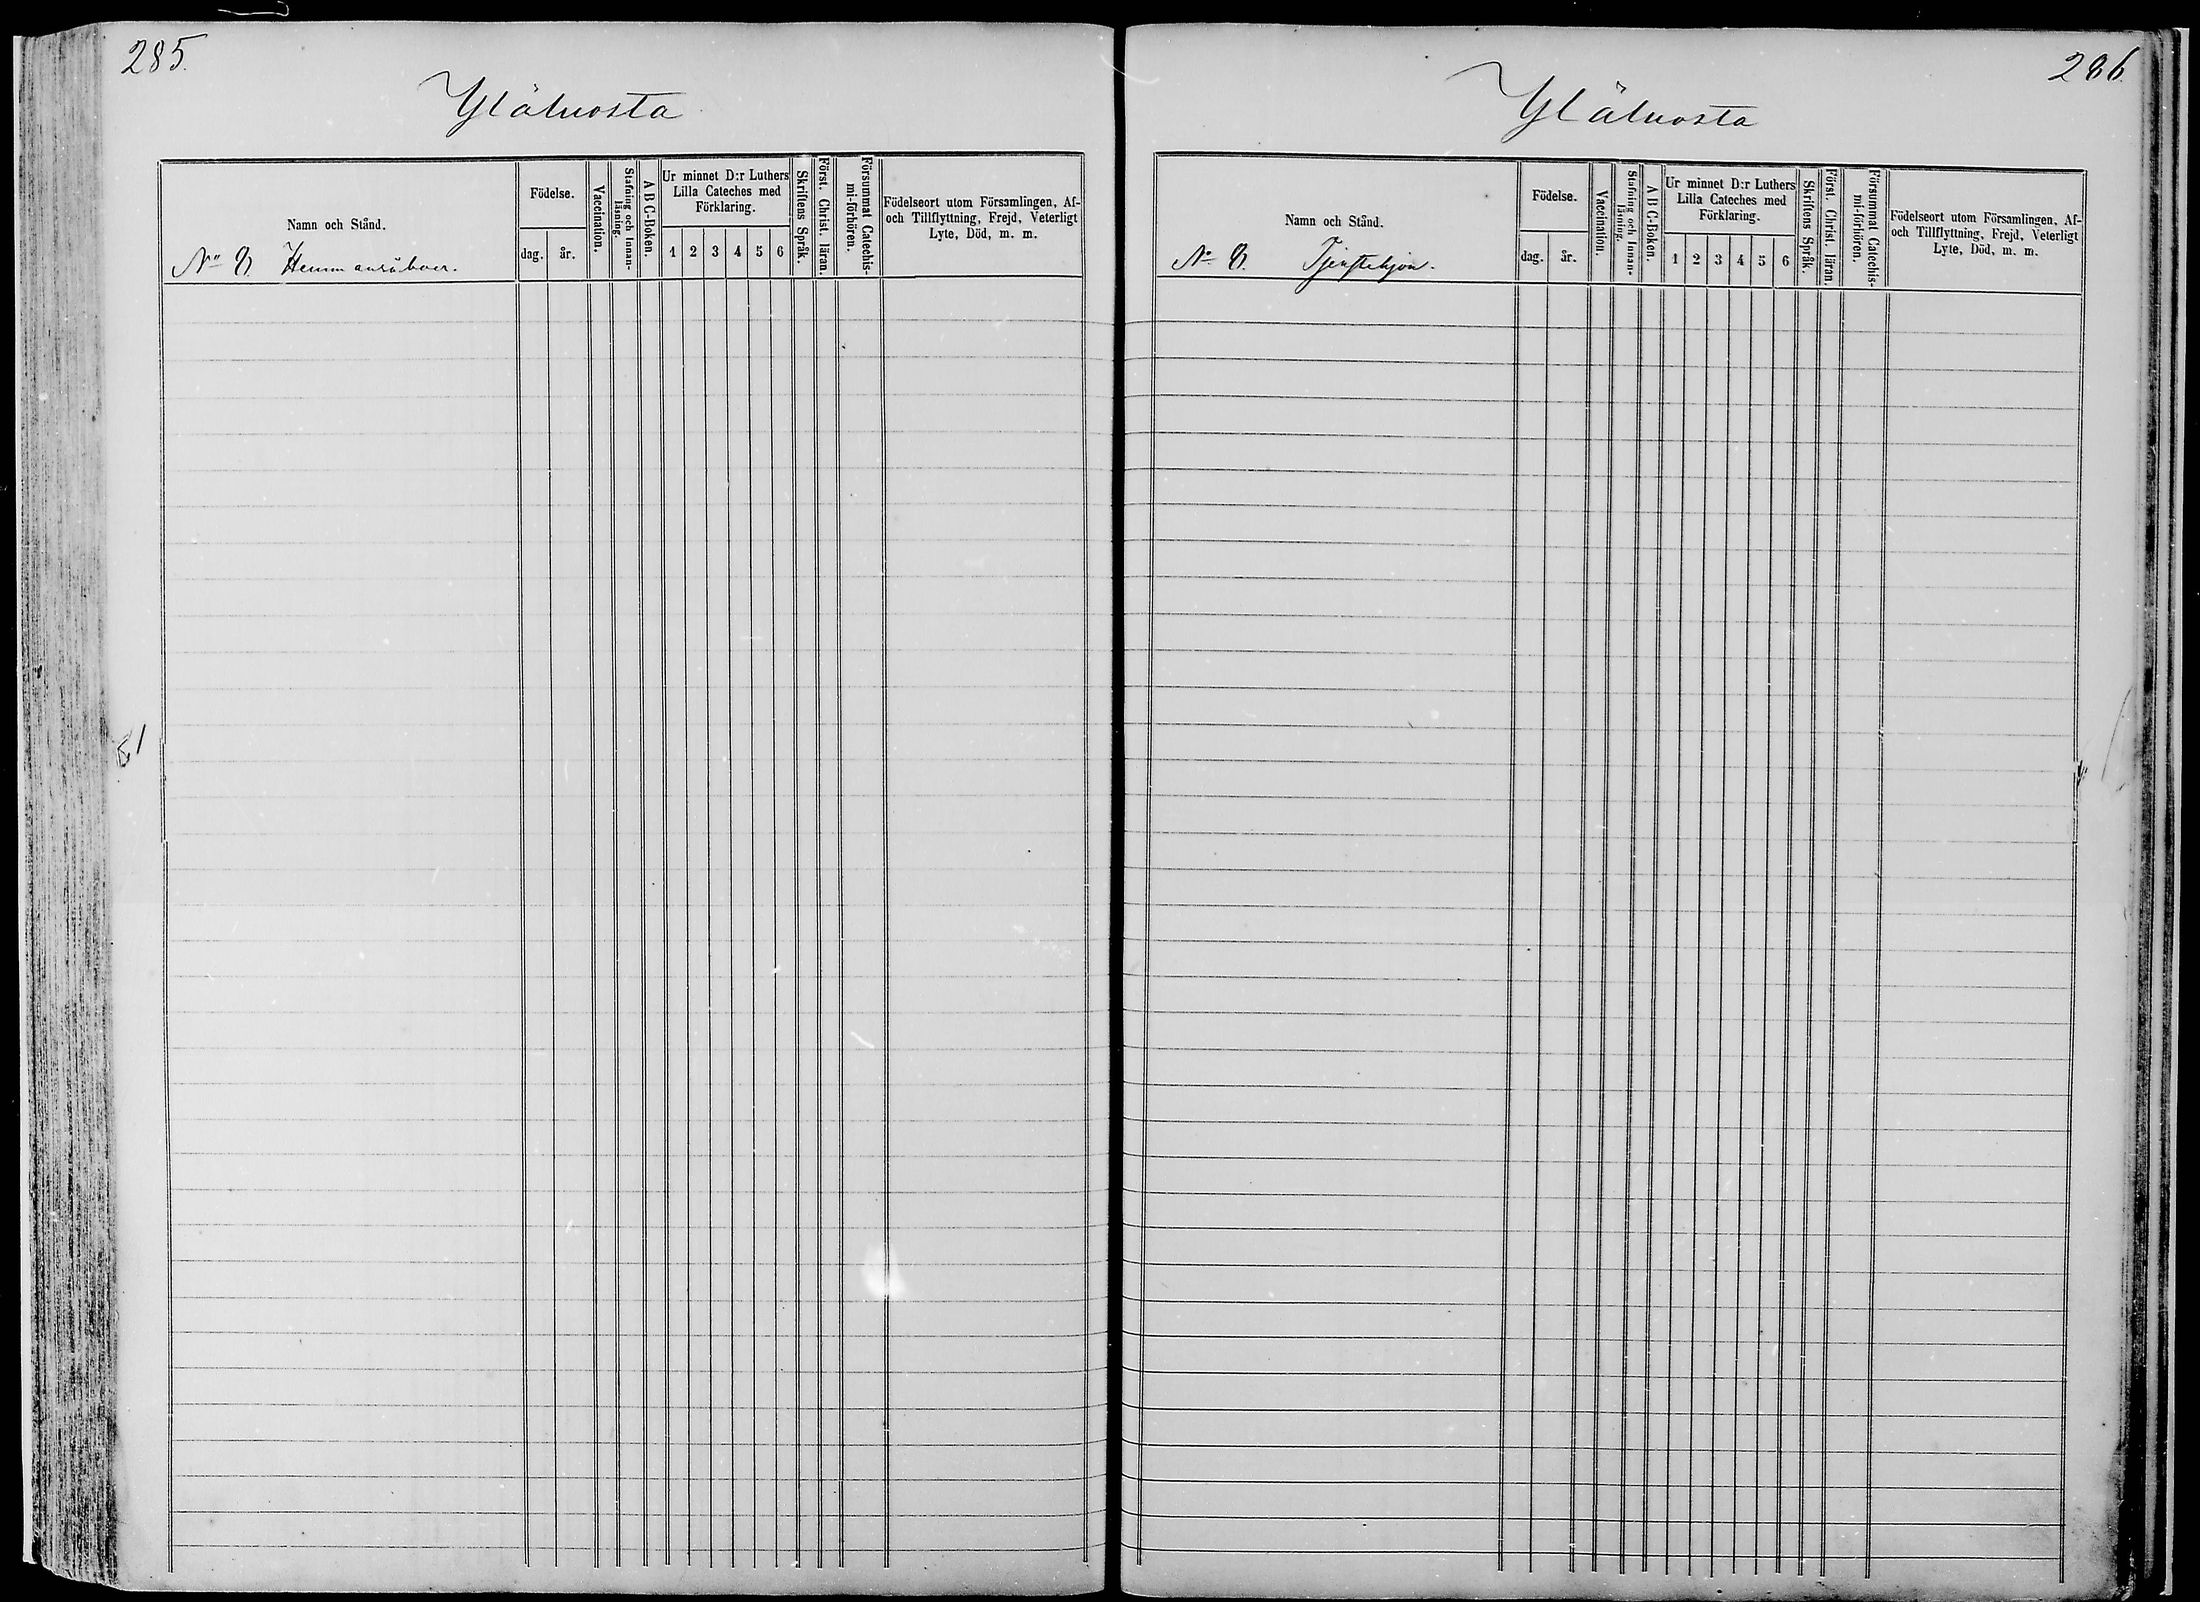 285.
Ylätuosta
Namn och Stånd.
No 8. Hemmansåboer.
Födelse.
dag. år.
Vaccination.
Stafning och Innan-
läsning.
A B C-Boken.
Ur minnet D:r Luthers
Lilla Cateches med
Förklaring.
1 2 3 4 5 6
Skriftens Språk.
Först. Christ. läran.
Försummat Catechis-
mi-förhören.
Födelseort utom Församlingen, Af-
och Tillflyttning, Frejd, Veterligt
Lyte, Död, m. m.
286.
Ylätuosta
Namn och Stånd.
No 8. Tjenstehjon.
Födelse.
dag. år.
Vaccination.
Stafning och Innan-
läsning.
A B C-Boken.
Ur minnet D:r Luthers
Lilla Cateches med
Förklaring.
1 2 3 4 5 6
Skriftens Språk.
Först. Christ. läran.
Försummat Catechis-
mi-förhören.
Födelseort utom Församlingen, Af-
och Tillflyttning, Frejd, Veterligt
Lyte, Död, m. m.